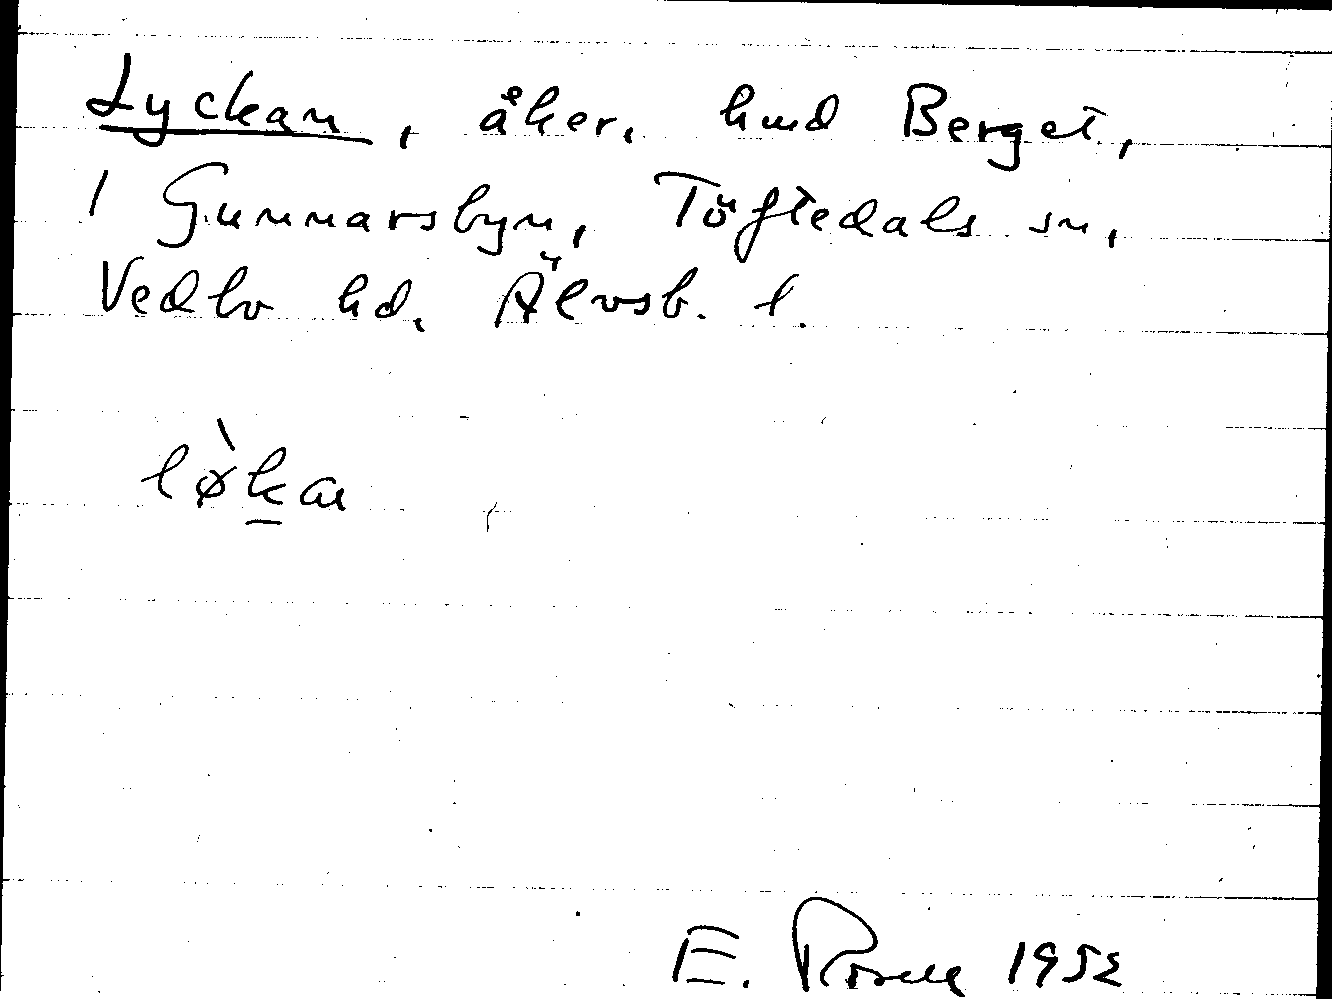 Lyckan, åker, hmd Berget,
1 Gunnarsbyn, Töftedals sn,
Vedbo hd. Älvsb. l.
lø̀k̲an
E. Rosell 1952